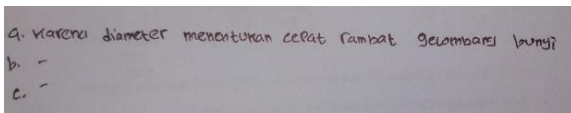 a. Karena diameter menentukan cepat rambat gelombang bunyi
b. -
c. -